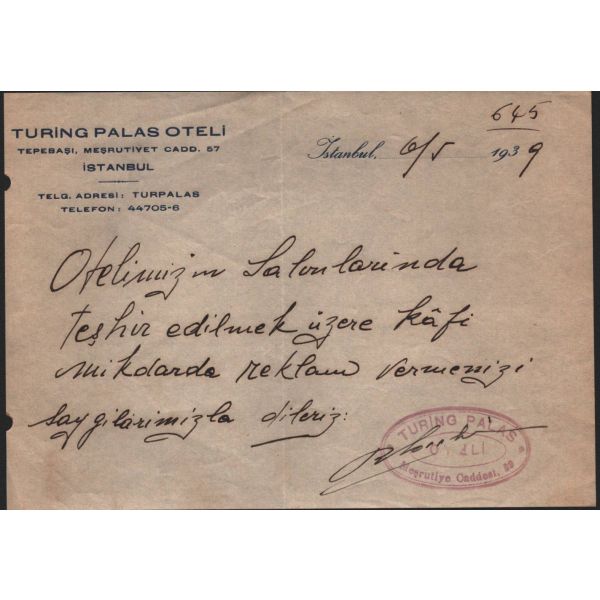 645
TURİNG PALAS OTELİ
TEPEBAŞI, MEŞRUTİYET CADD. 57
İSTANBUL
TELG. ADRESİ: TURPALAS
TELEFON: 44705-6
İstanbul, 6/5 1939
Otelimizin Salonlarında
teşhir edilmek üzere kâfi
mikdarda reklam vermenizi
saygılarımızla dileriz:
TURİNG PALAS
Meşrutiye Caddesi,